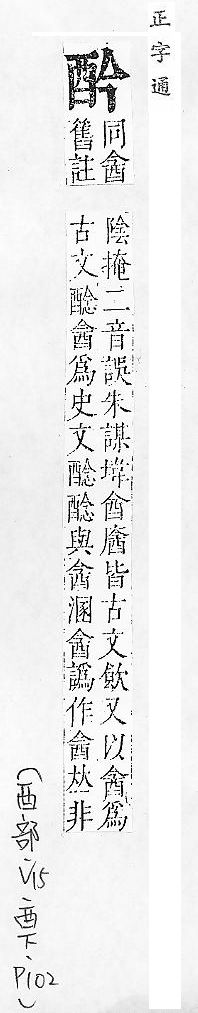 正字通
同酓
舊註
陰掩二音誤朱謀㙔酓皆古文飲又以酓爲
古文酓爲史文與酓溷酓譌作酓𠀤非
（酉部、V15、酉下、P102）